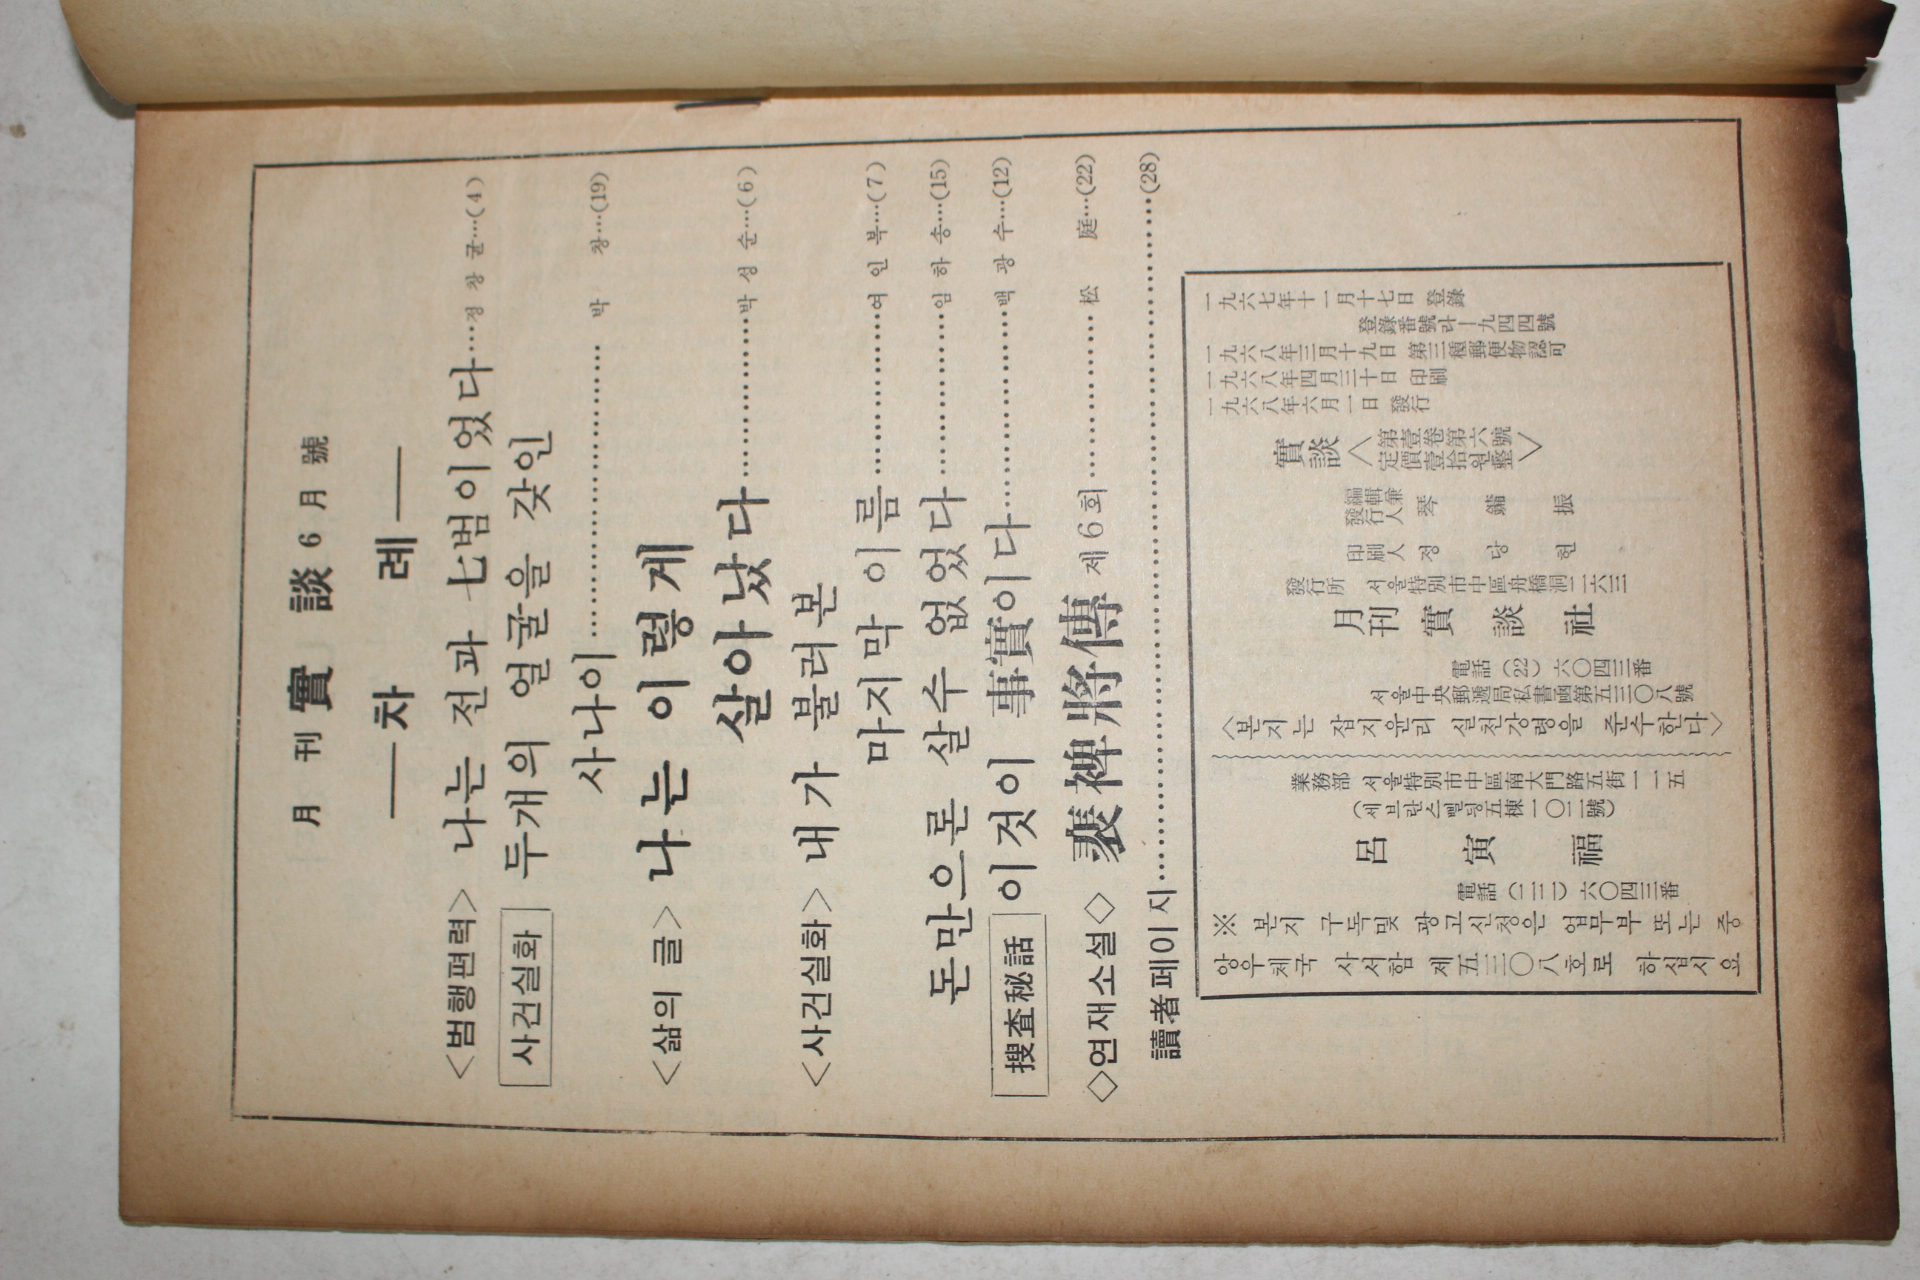 月刊 實談 6月號
—차 례—
<범행편력> 나는 전과 七범이었다…정창귤…(4)
사건실화 두개의 얼굴을 갖인
사나이………………박 창…(19)
<삶의 글> 나는 이렇게
살아났다…………박성순…(6)
<사건실화> 내가 불러본
마지막 이름…………여인복…(7)
돈만으론 살수 없었다…………임하송…(15)
搜査秘話 이것이 事實이다…………백광수…(12)
◇연재소설◇ 裵裨將傳 제6회…………松 庭…(22)
讀者페이지………………………………(28)
一九六七年十一月十七日 登錄
登錄番號라—九四四號
一九六八年三月十九日 第三種郵便物認可
一九六八年四月三十日 印刷
一九六八年六月一日 發行
實談
<第壹卷第六號
定價壹拾원整>
編輯兼
發行人 琴 鏞 振
印刷人 정 당 헌
發行所 서울特別市中區舟橋洞二六三
月刊 實 談 社
電話 (22) 六〇四三番
서울中央郵遞局私書函第五三〇八號
<본지는 잡지윤리 실천강령을 준수한다>
業務部 서울特別市中區南大門路五街一一五
(세브란스삘딩五棟一〇二號)
呂 寅 福
電話 (二二) 六〇四三番
※ 본지 구독및 광고신청은 업무부 또는 중
앙우체국 사서함 제五三〇八호로 하십시요